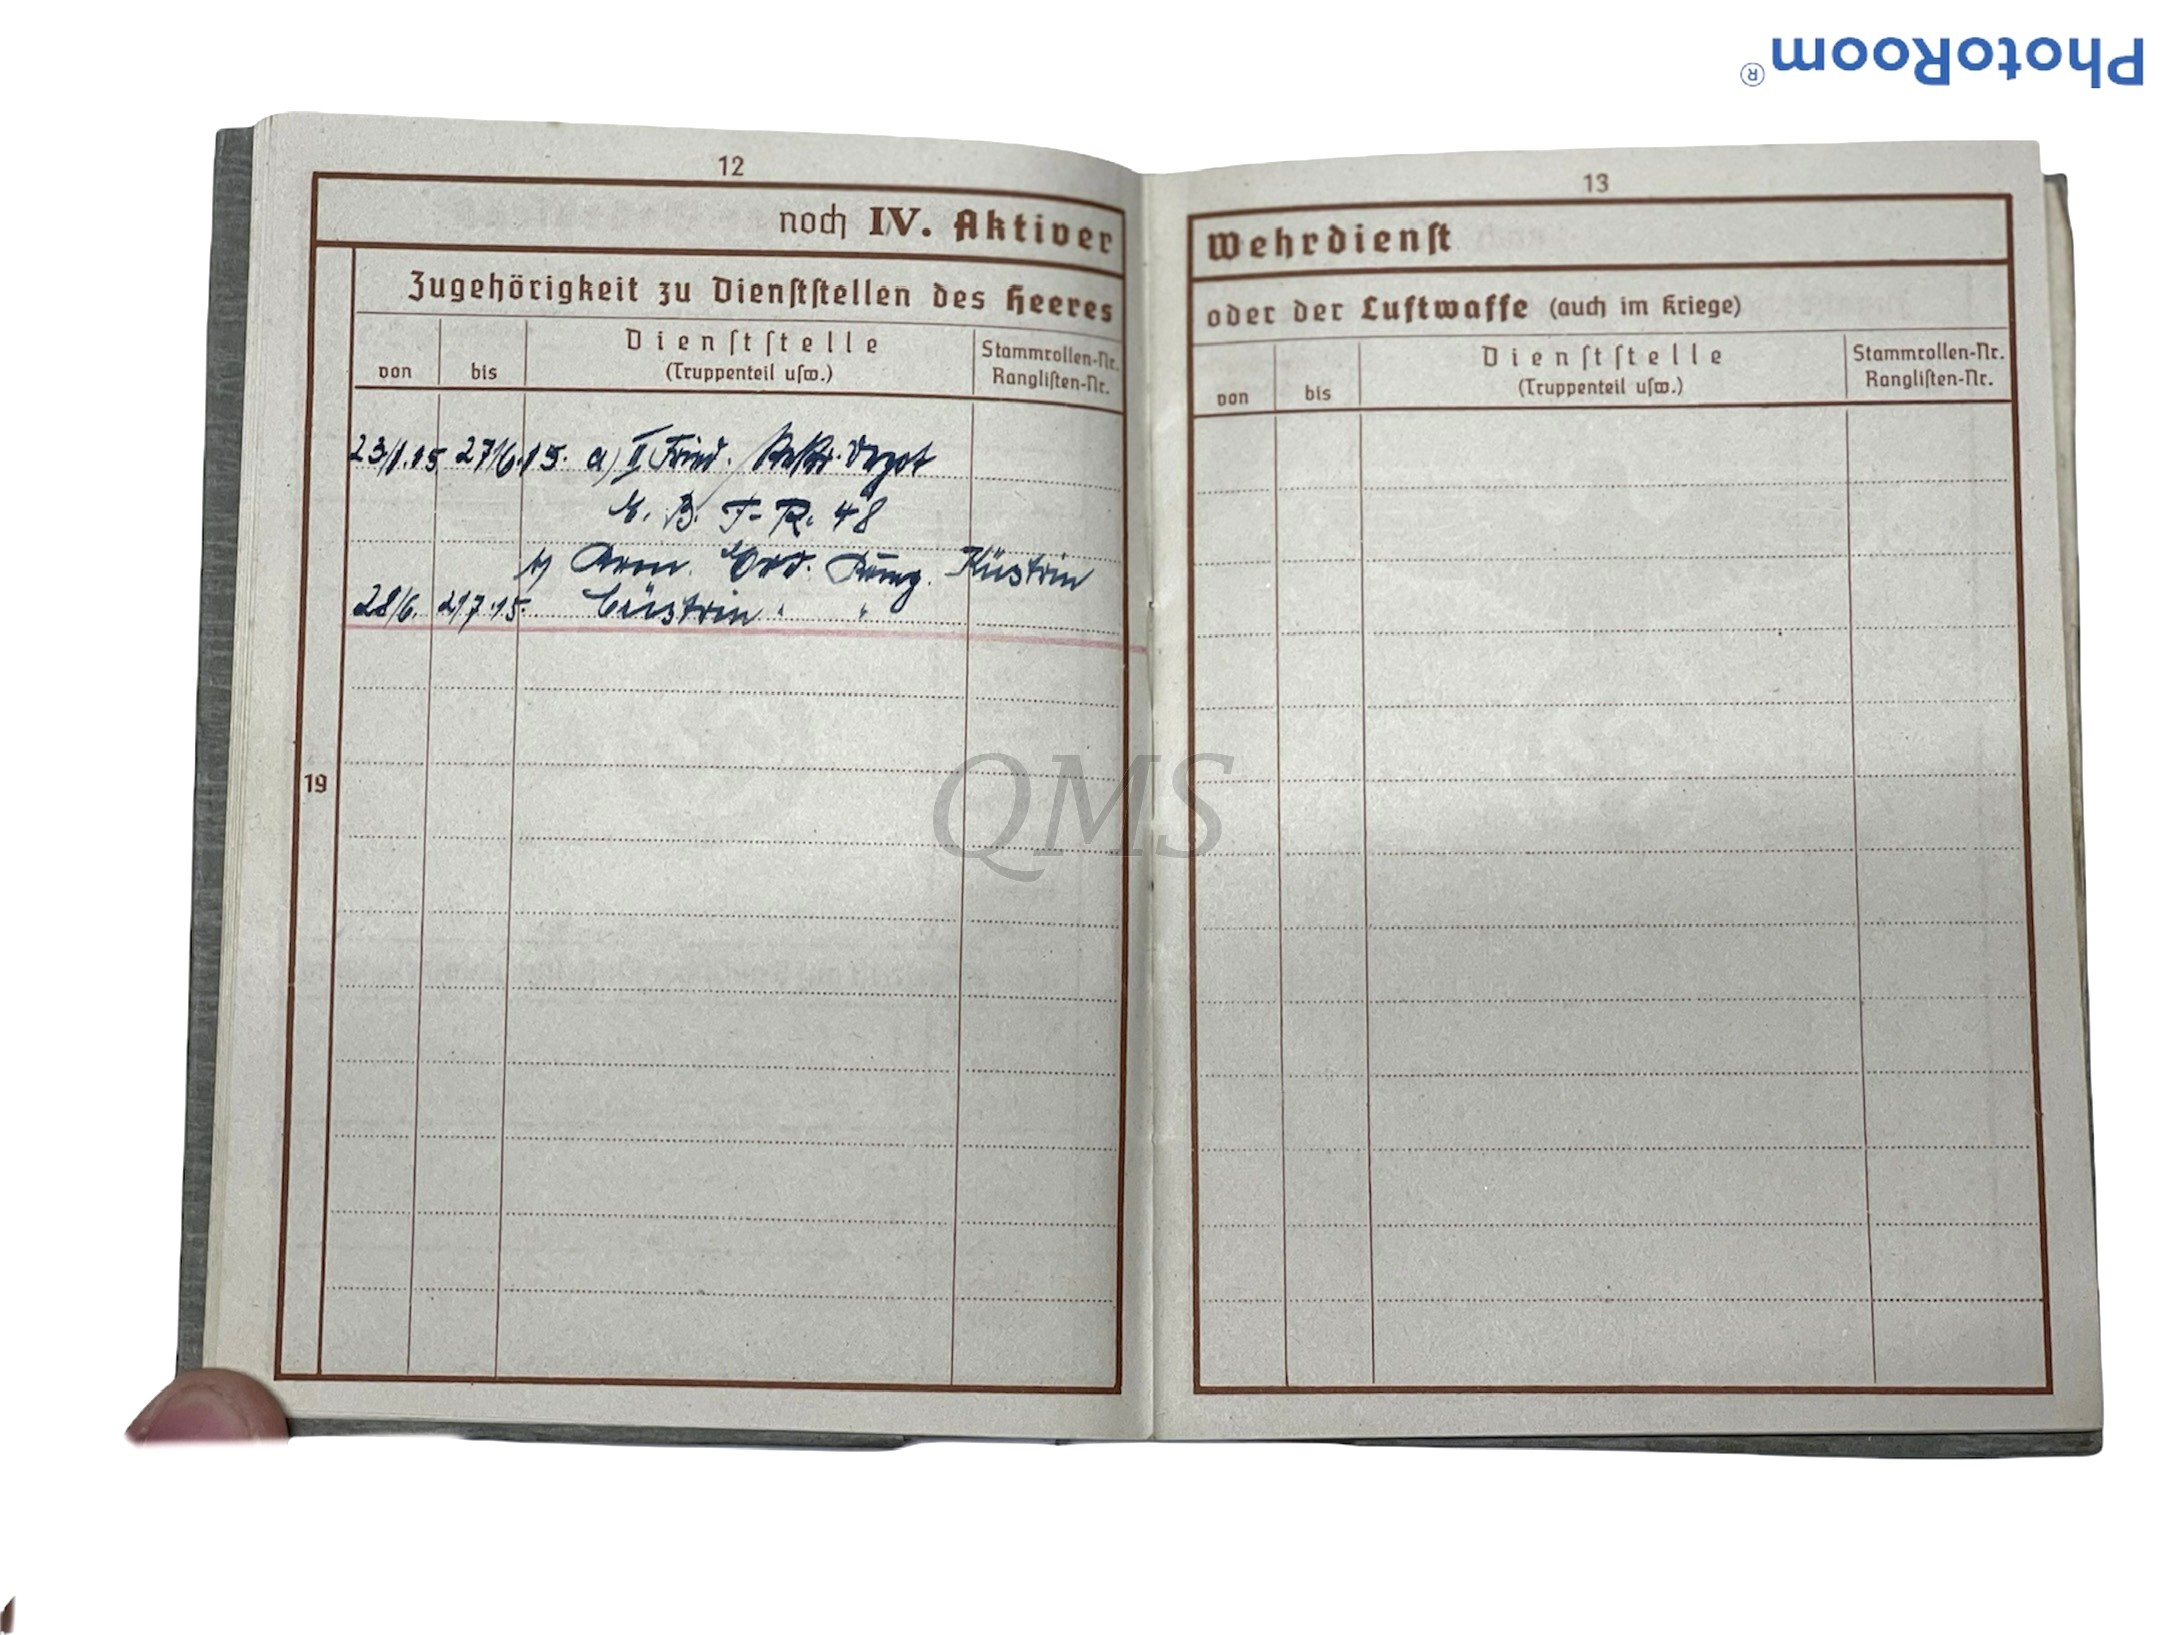 PhotoRoom®
12
noch IV. Aktiver
Zugehörigkeit zu Dienststellen des Heeres
von
bis
Dienststelle
(Truppenteil usw.)
Stammrollen-Nr.
Ranglisten-Nr.
23/1.15 27/6.15. a) II. Rekr. Depot
E. B. I. R. 48
b) Arm. Küstrin
28/6. 2/7.15. Cüstrin " "
19
QMS
13
Wehrdienst
oder der Luftwaffe (auch im Kriege)
von
bis
Dienststelle
(Truppenteil usw.)
Stammrollen-Nr.
Ranglisten-Nr.